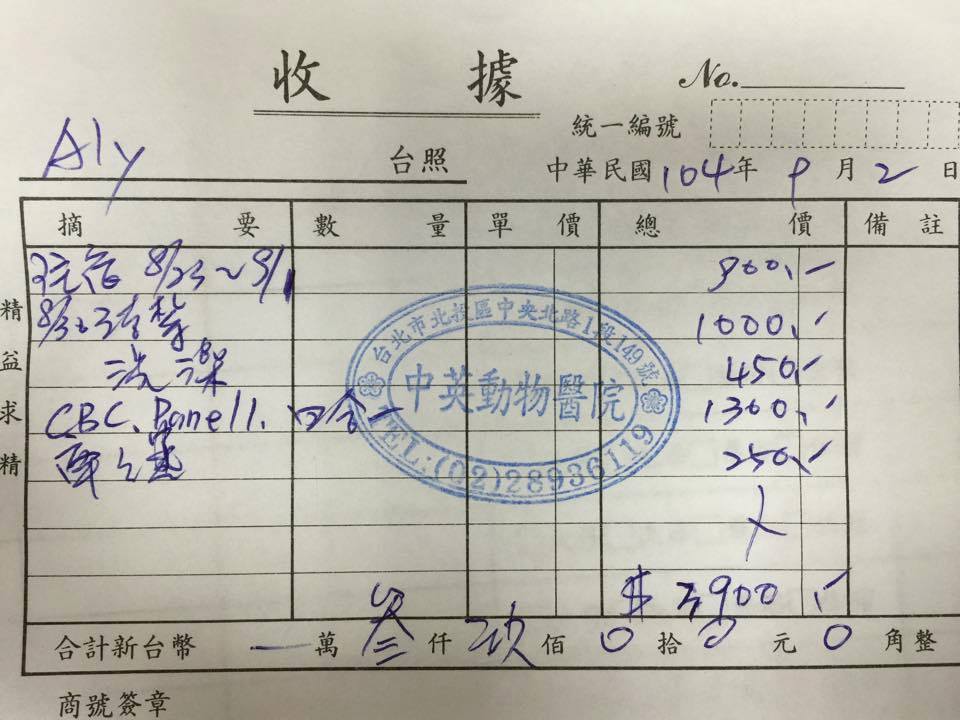 收據
No.
統一編號
Aly 台照
中華民國 104 年 9 月 2 日
摘要 數量 單價 總價 備註
住宿 8/23~9/1 900.-
1000.-
洗澡 450.-
CBC. Panel 1. 四合一 1300.-
250.-
$ 3900.-
合計新台幣 一 萬 叁 仟 玖 佰 0 拾 0 元 0 角整
商號簽章
精益求精
台北市北投區中央北路1段149號
中英動物醫院
TEL:(02)28936119